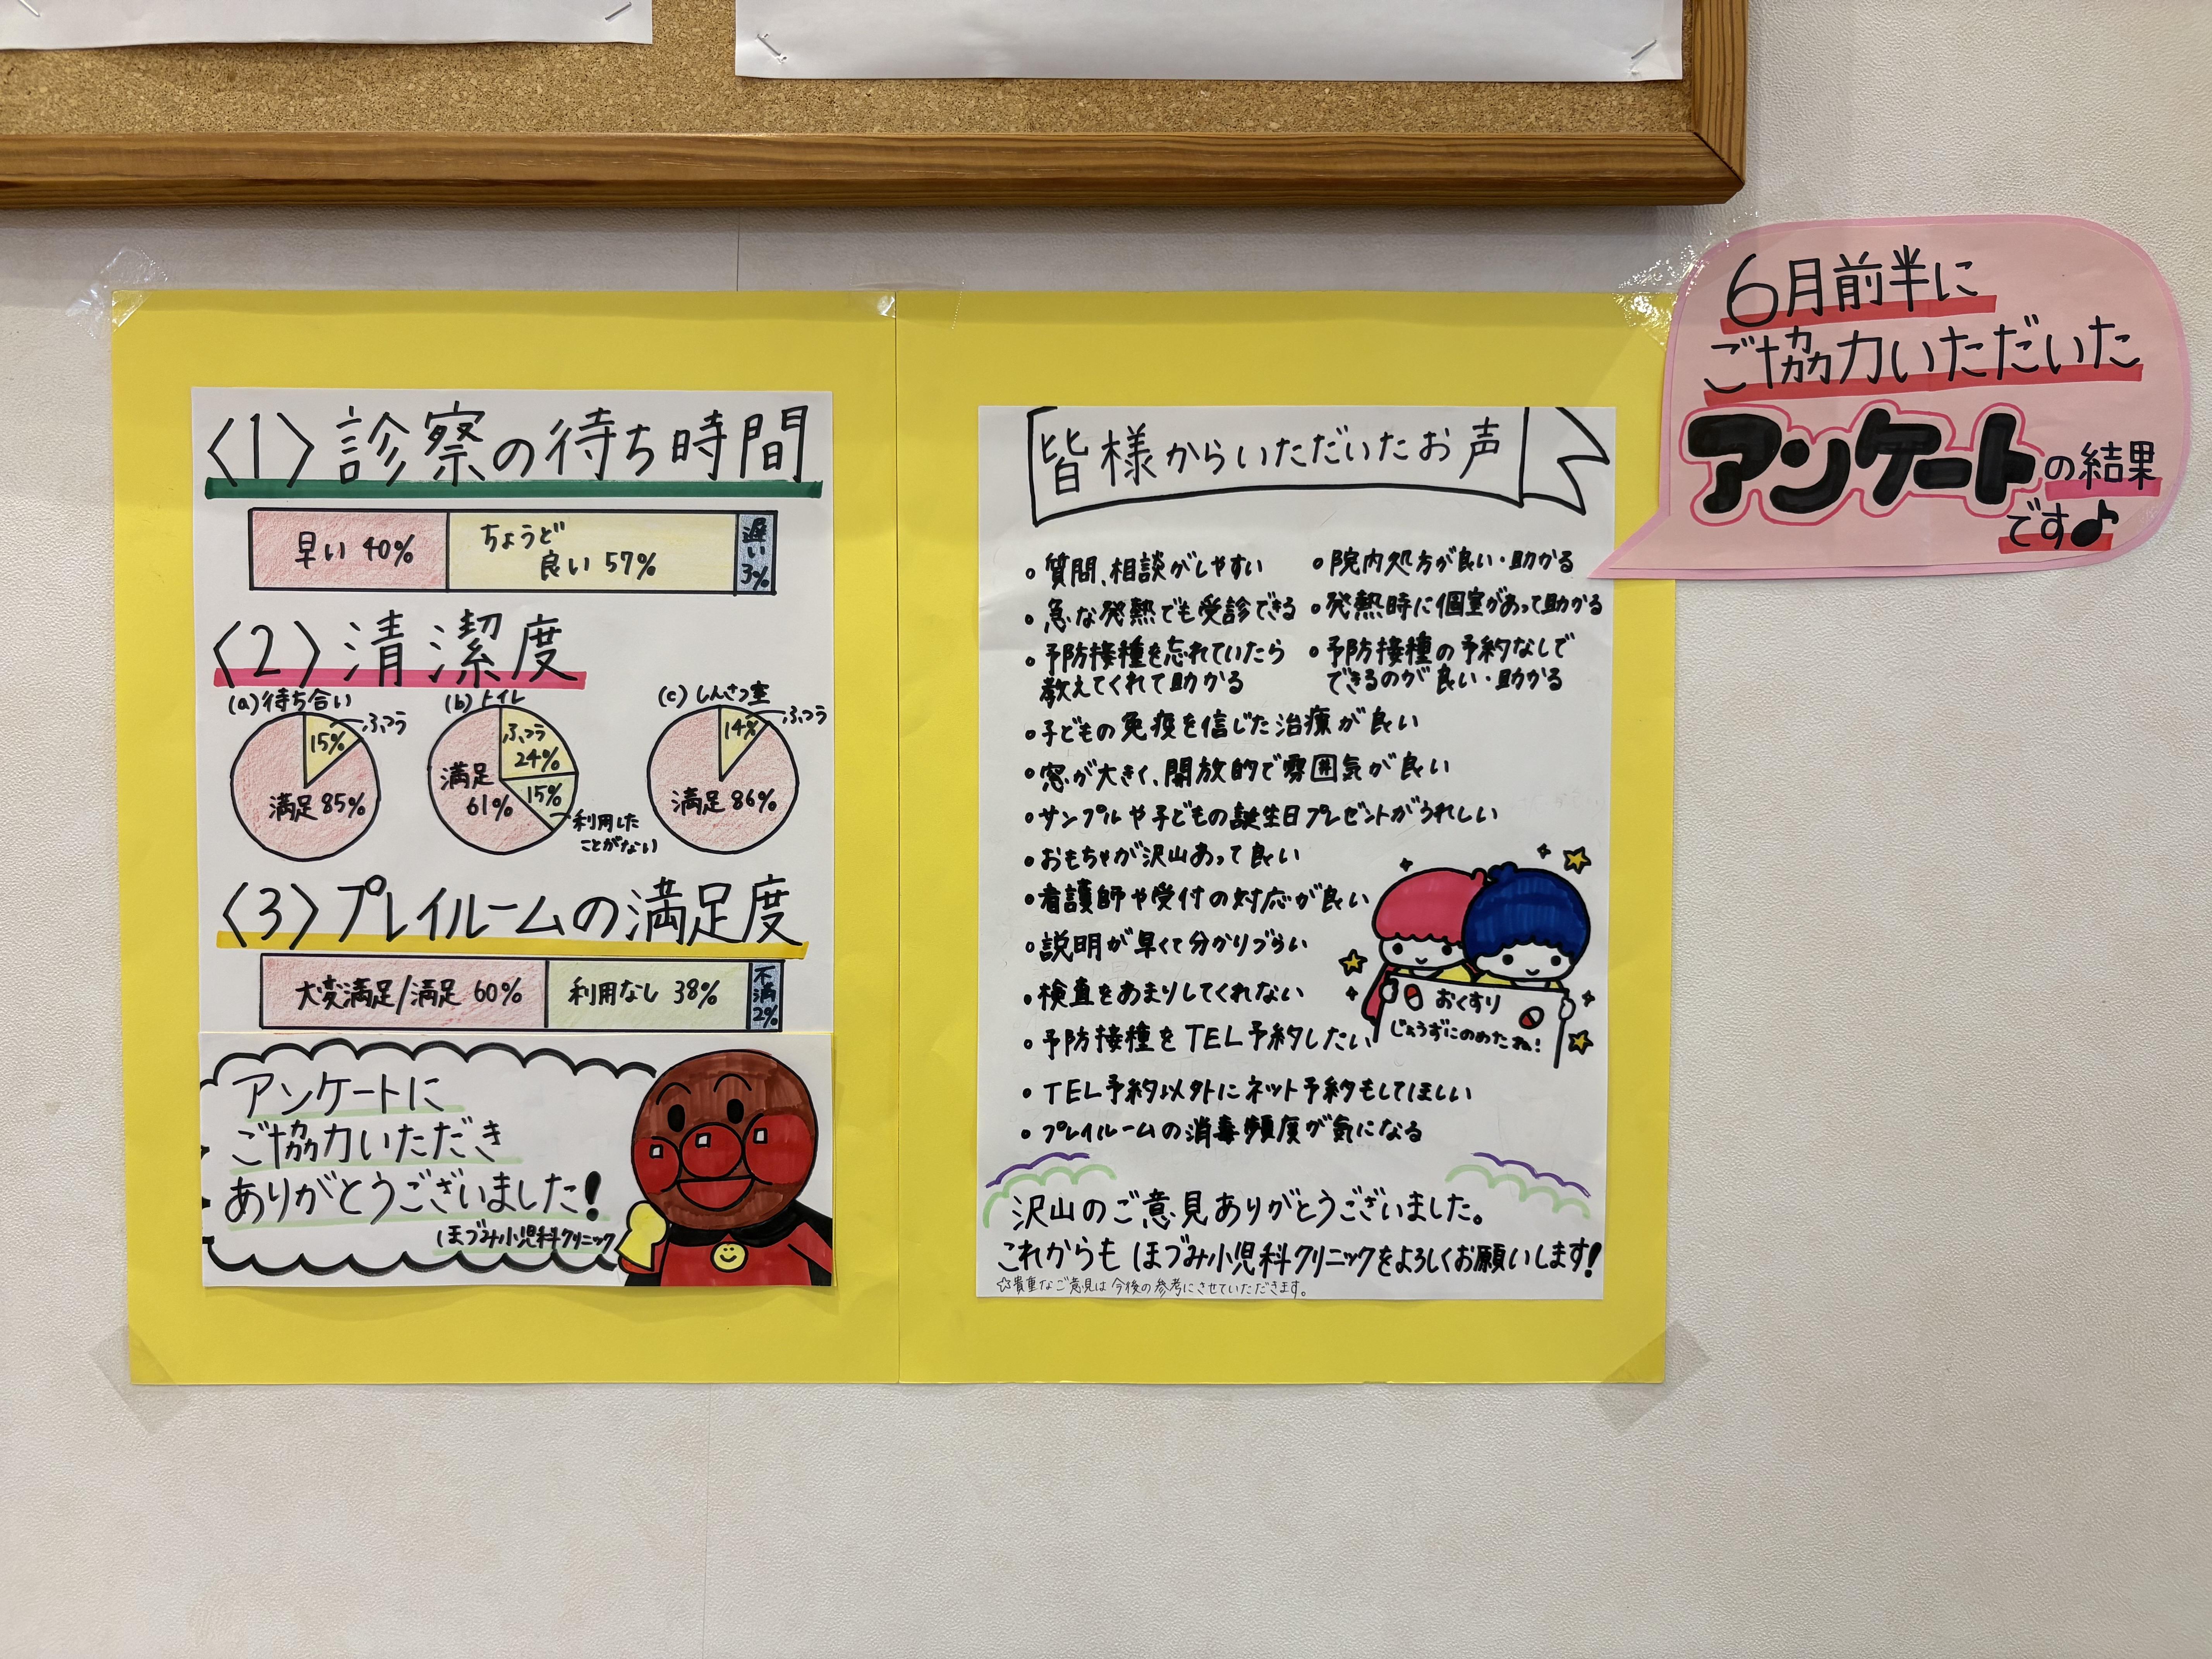 6月前半に
ご協力いただいた
アンケートの結果
です♪
〈1〉診察の待ち時間
早い 40%
ちょうど
良い 57%
遅い
3%
〈2〉清潔度
(a)待ち合い
ふつう
15%
満足 85%
(b)トイレ
ふつう
24%
満足
61%
15%
利用した
ことがない
(c)しんさつ室
ふつう
14%
満足 86%
〈3〉プレイルームの満足度
大変満足/満足 60%
利用なし 38%
不満
2%
アンケートに
ご協力いただき
ありがとうございました!
ほづみ小児科クリニック
皆様からいただいたお声
・質問、相談がしやすい
・急な発熱でも受診できる
・予防接種を忘れていたら
教えてくれて助かる
・院内処方が良い・助かる
・発熱時に個室があって助かる
・予防接種の予約なしで
できるのが良い・助かる
・子どもの免疫を信じた治療が良い
・窓が大きく、開放的で雰囲気が良い
・サンプルや子どもの誕生日プレゼントがうれしい
・おもちゃが沢山あって良い
・看護師や受付の対応が良い
・説明が早くて分かりづらい
・検査をあまりしてくれない
・予防接種をTEL予約したい
・TEL予約以外にネット予約もしてほしい
・プレイルームの消毒頻度が気になる
おくすり
じょうずにのめたね!
沢山のご意見ありがとうございました。
これからも ほづみ小児科クリニックをよろしくお願いします!
☆貴重なご意見は今後の参考にさせていただきます。